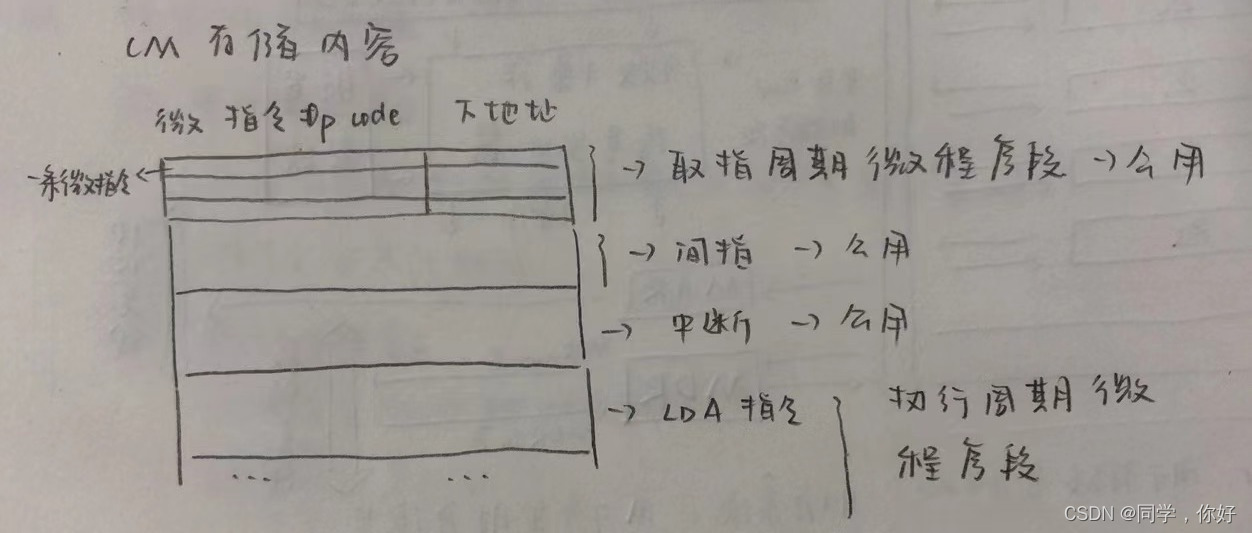 CM 存储内容
微指令 Op code 下地址
一条微指令 → 取指周期微程序段 → 公用
→ 间指 → 公用
→ 中断 → 公用
→ LDA 指令 执行周期微
程序段
... ...
CSDN @同学，你好